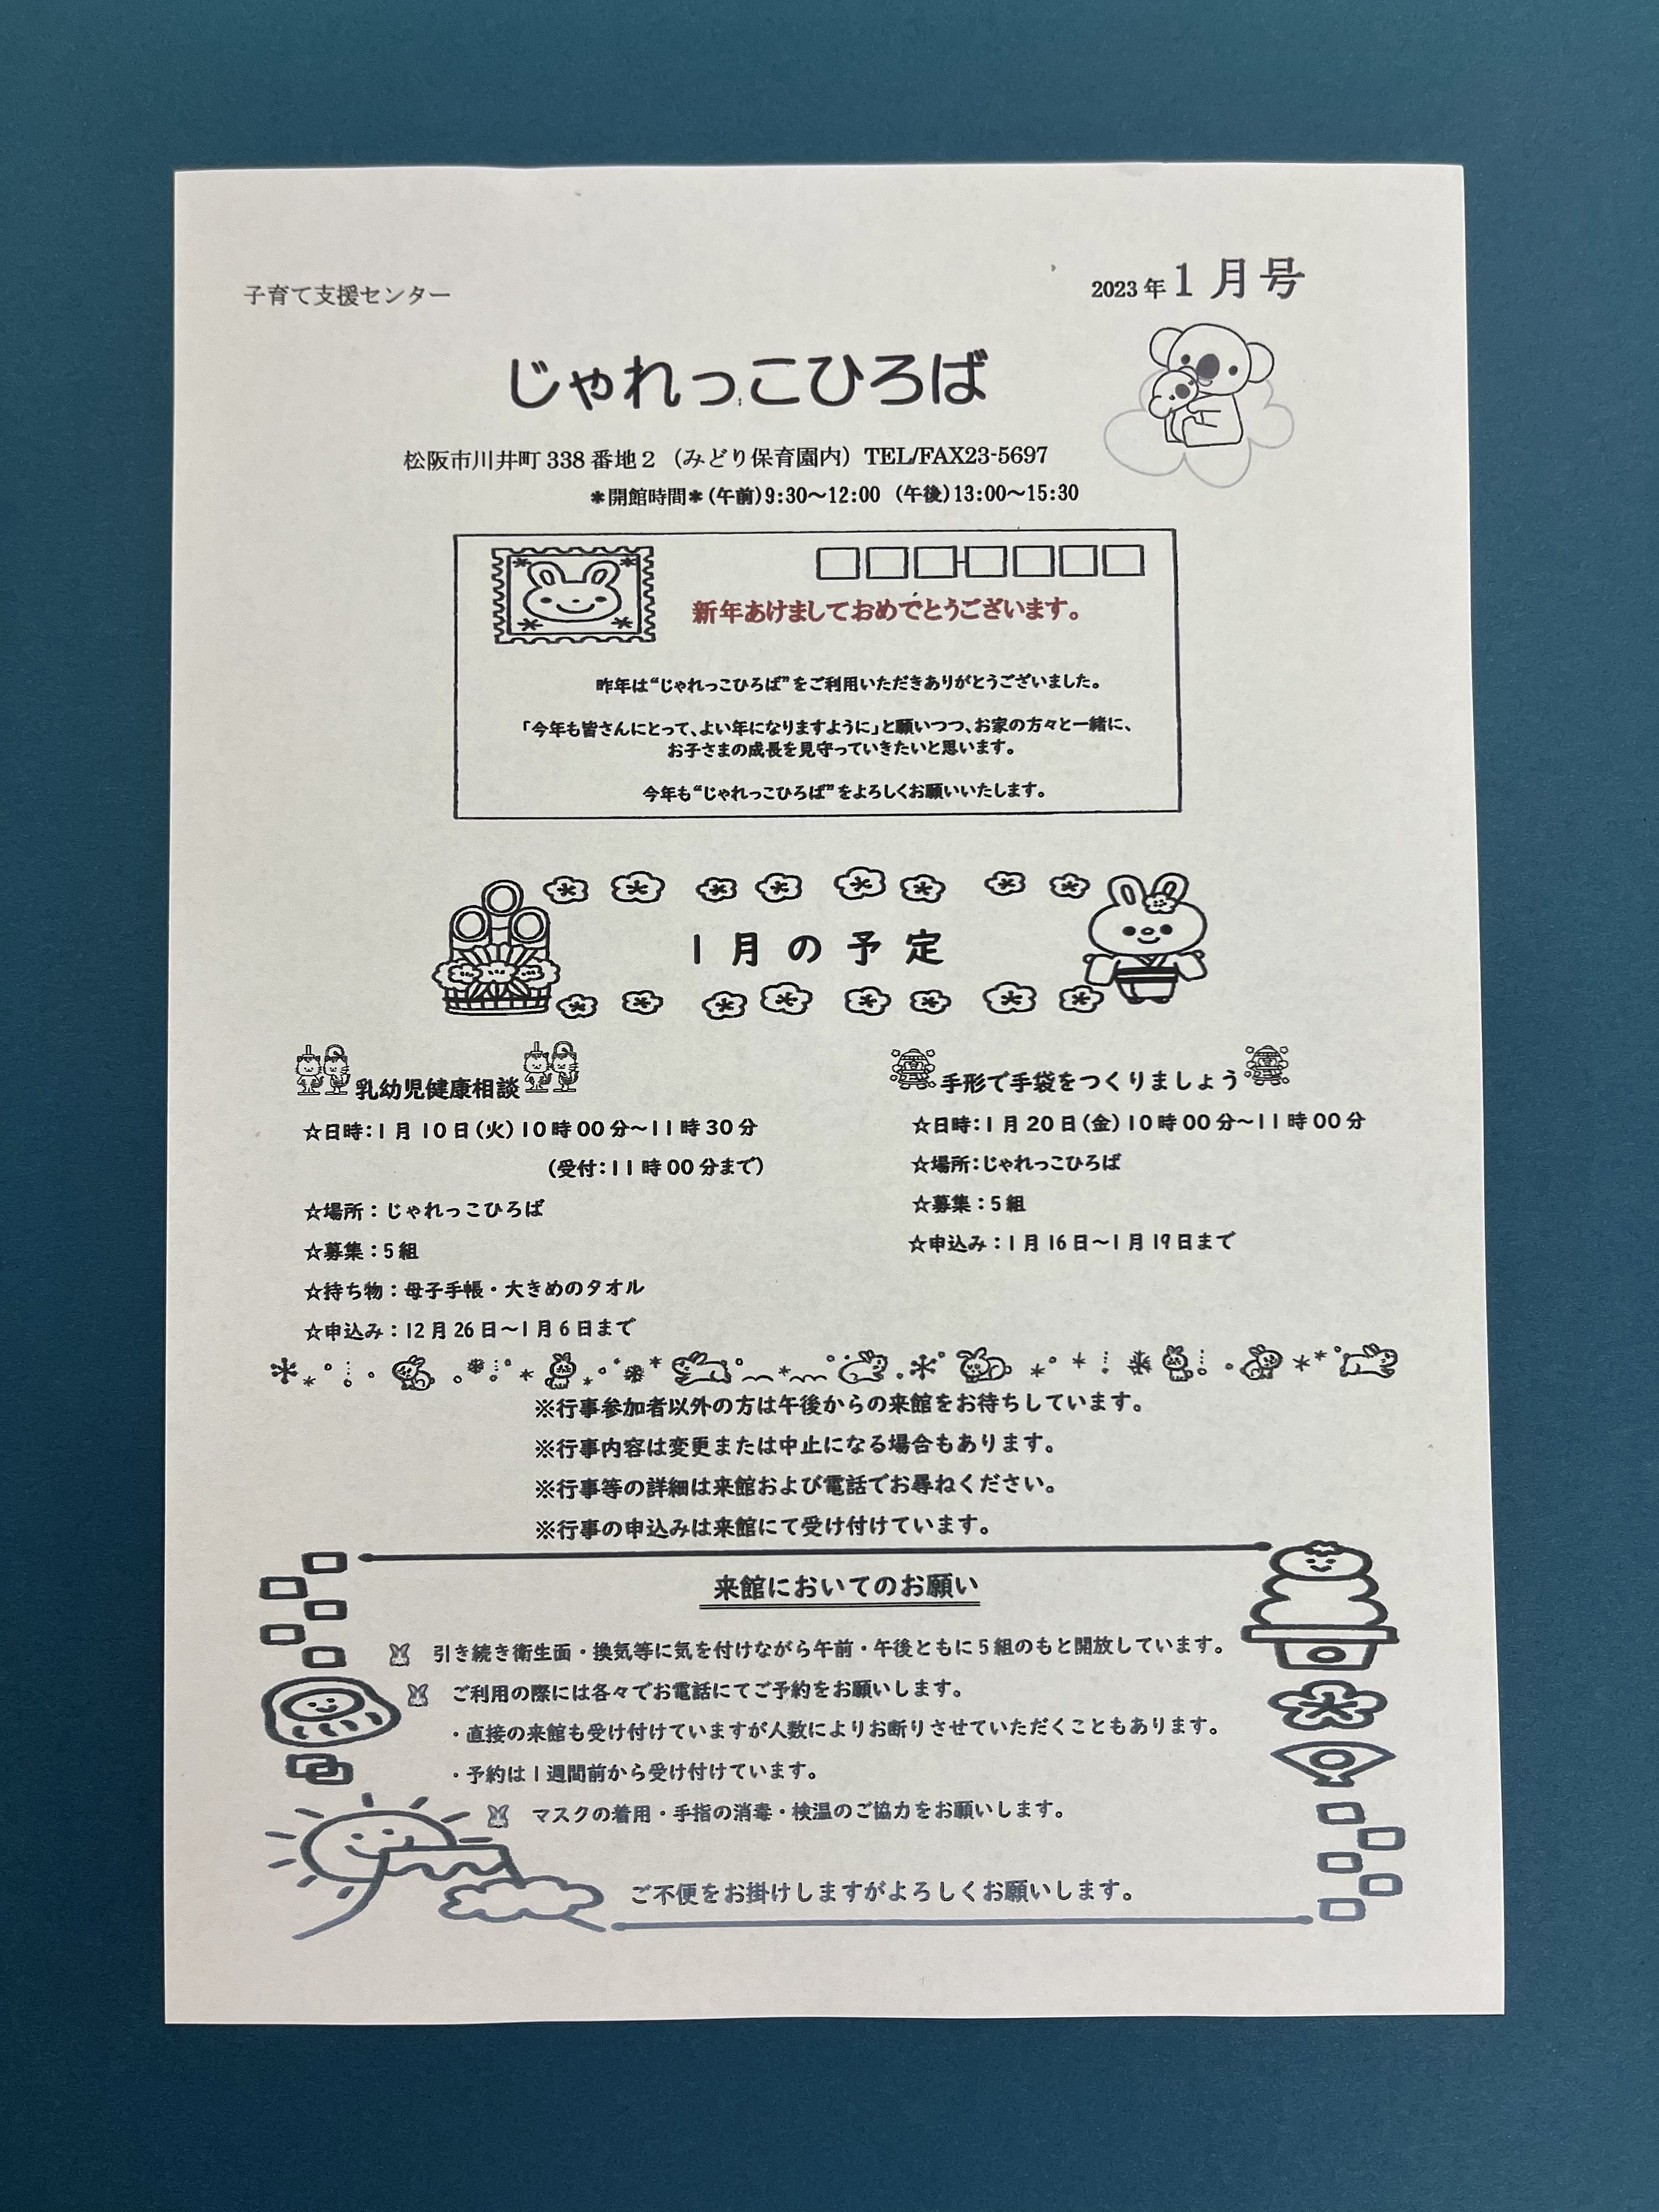 子育て支援センター
2023年1月号
じゃれっこひろば
松阪市川井町338番地2（みどり保育園内）TEL/FAX23-5697
＊開館時間＊(午前)9:30～12:00 (午後)13:00～15:30
新年あけましておめでとうございます。
昨年は“じゃれっこひろば”をご利用いただきありがとうございました。
「今年も皆さんにとって、よい年になりますように」と願いつつ、お家の方々と一緒に、
お子さまの成長を見守っていきたいと思います。
今年も“じゃれっこひろば”をよろしくお願いいたします。
1月の予定
乳幼児健康相談
☆日時：1月10日（火）10時00分～11時30分
（受付：11時00分まで）
☆場所：じゃれっこひろば
☆募集：5組
☆持ち物：母子手帳・大きめのタオル
☆申込み：12月26日～1月6日まで
手形で手袋をつくりましょう
☆日時：1月20日（金）10時00分～11時00分
☆場所：じゃれっこひろば
☆募集：5組
☆申込み：1月16日～1月19日まで
※行事参加者以外の方は午後からの来館をお待ちしています。
※行事内容は変更または中止になる場合もあります。
※行事等の詳細は来館および電話でお尋ねください。
※行事の申込みは来館にて受け付けています。
来館においてのお願い
引き続き衛生面・換気等に気を付けながら午前・午後ともに5組のもと開放しています。
ご利用の際には各々でお電話にてご予約をお願いします。
・直接の来館も受け付けていますが人数によりお断りさせていただくこともあります。
・予約は1週間前から受け付けています。
マスクの着用・手指の消毒・検温のご協力をお願いします。
ご不便をお掛けしますがよろしくお願いします。